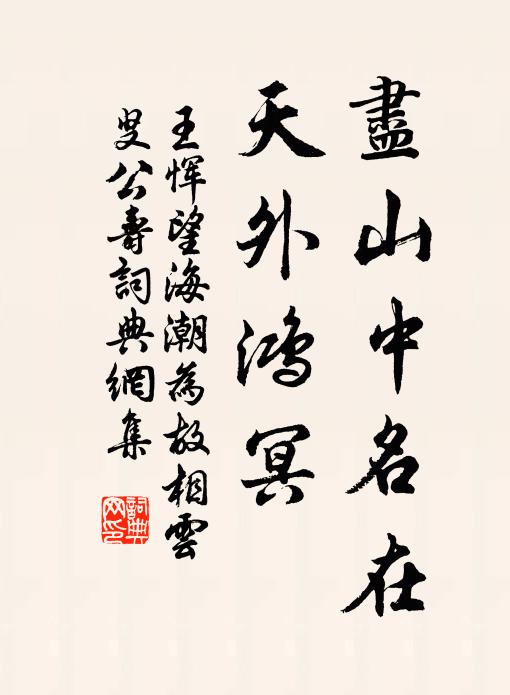 盡山中名在
天外鴻冥
王惲望海潮為故相雲
叟公壽詞典網集
詞典網印